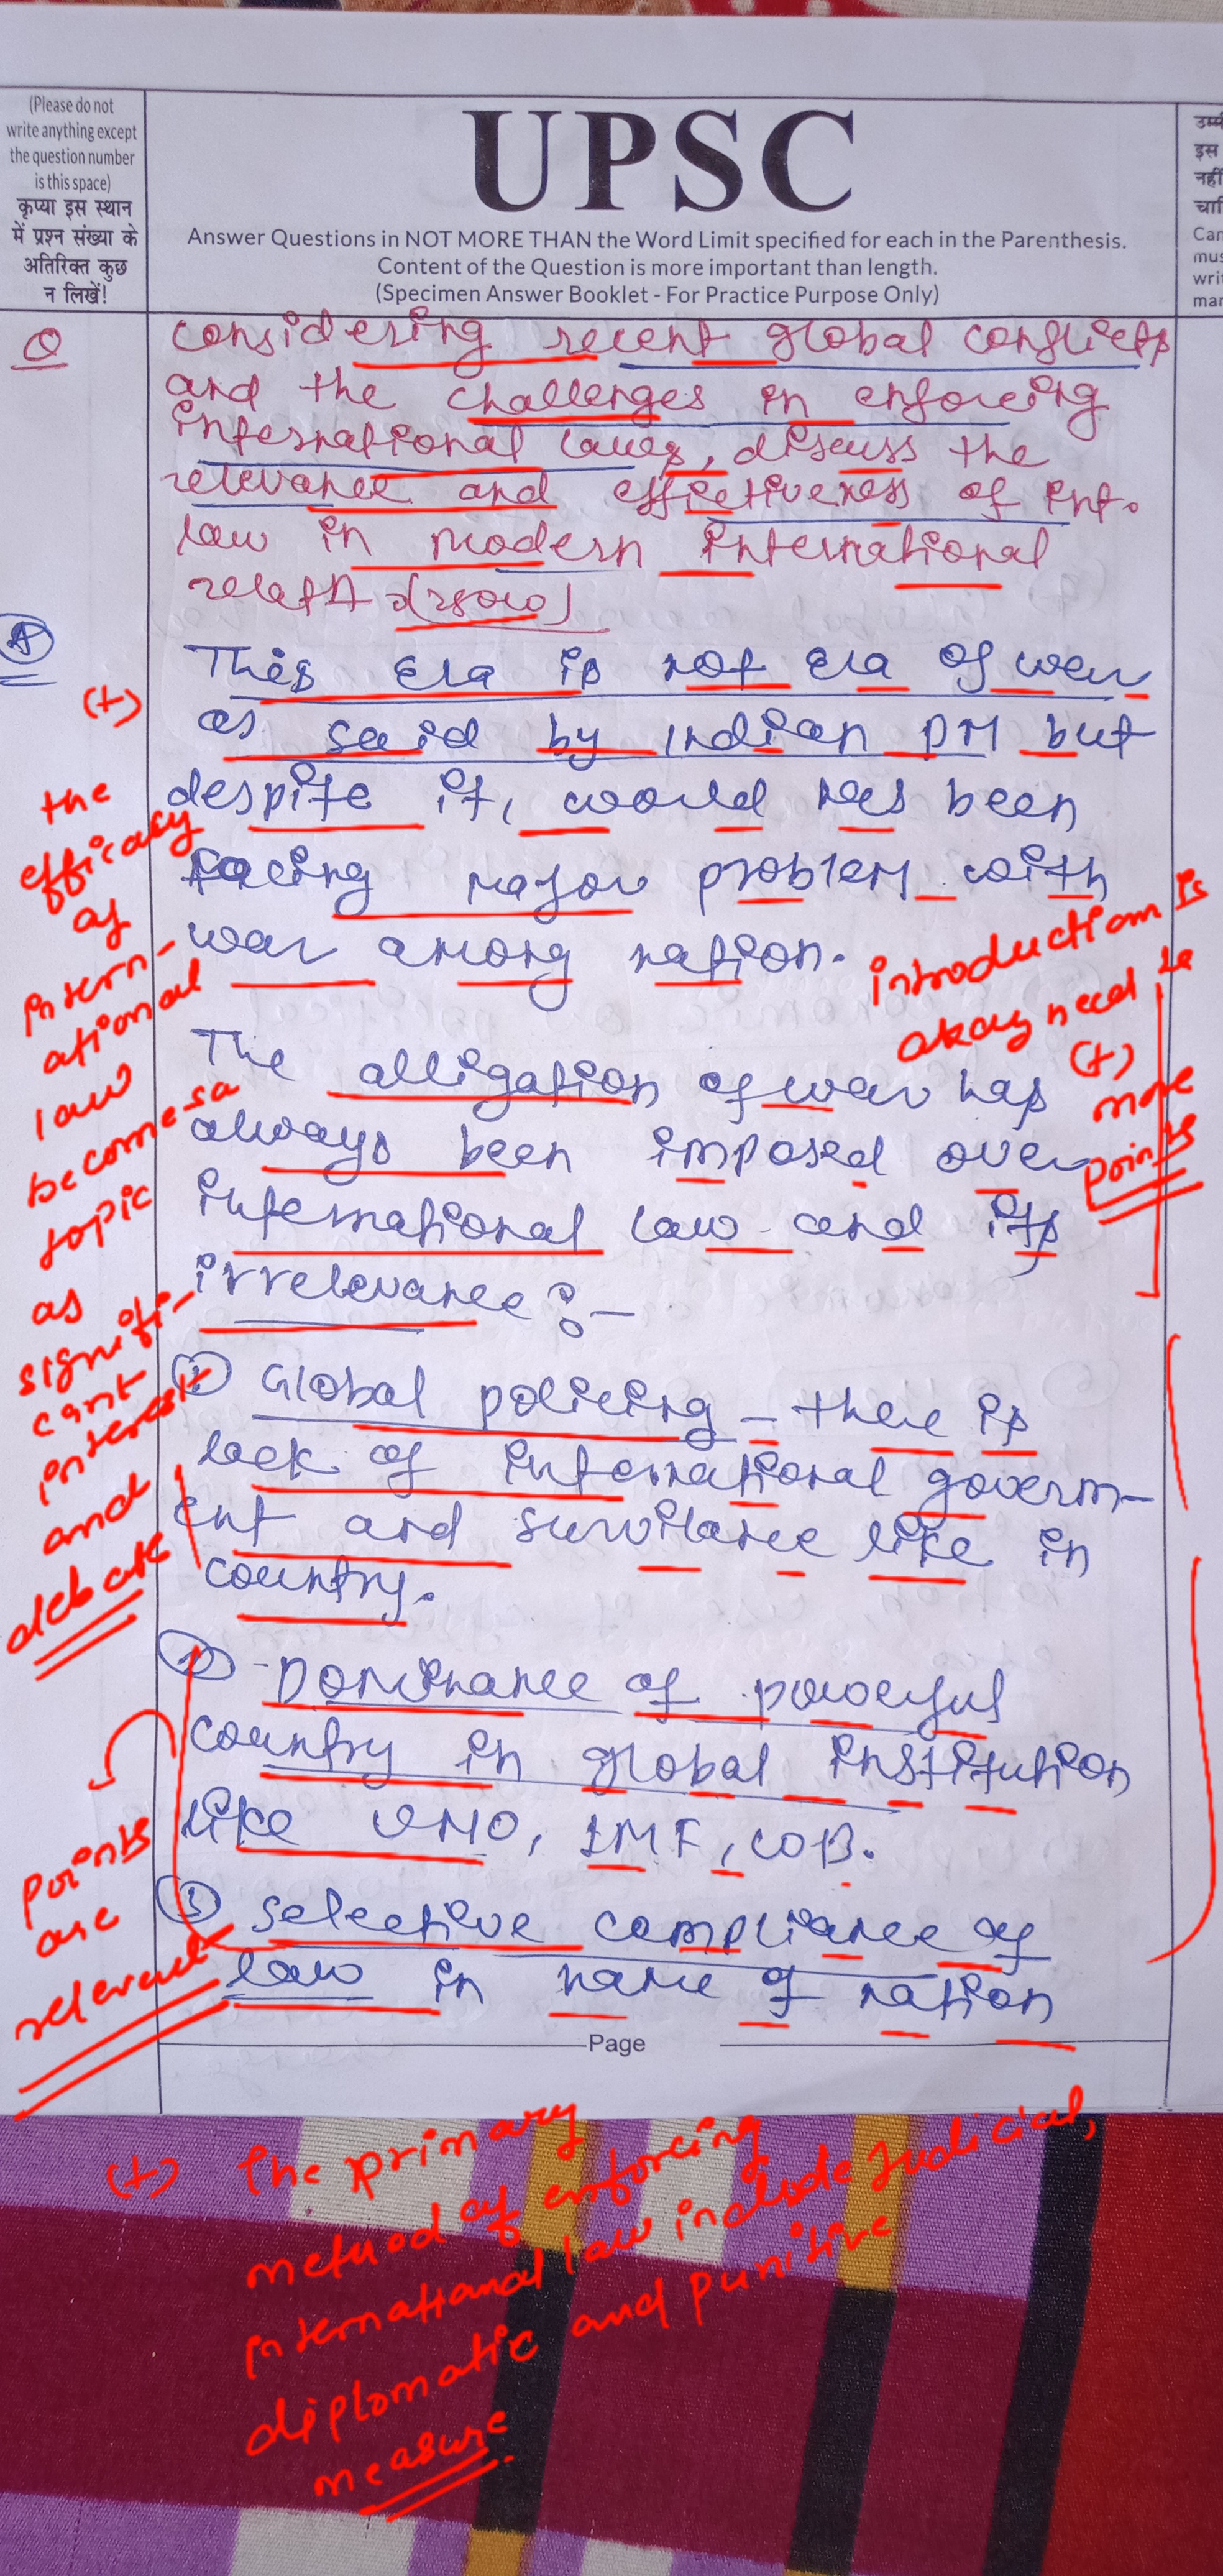 (Please do not
write anything except
the question number
is this space)
कृप्या इस स्थान
में प्रश्न संख्या के
अतिरिक्त कुछ
न लिखें!
UPSC
Answer Questions in NOT MORE THAN the Word Limit specified for each in the Parenthesis.
Content of the Question is more important than length.
(Specimen Answer Booklet - For Practice Purpose Only)
उम्मी
इस
नहीं
चाहि
Can
mus
writ
mar
Q
considering recent global conflicts
and the challenges in enforcing
international laws, discuss the
relevance and effectiveness of int.
law in modern international
A
This Era is not era of war
as said by Indian PM but
despite it, world has been
facing major problem with
war among nation.
introduction is
okay need to
(+)
more
points
(+)
the
efficacy
of
intern-
ational
law
becomes a
topic
as
signifi-
cant
interest
and
debate
The alligation of war has
always been imposed over
international law and its
irrelevance :-
① Global policing - there is
lack of international governm-
ent and survilance like in
country.
② Dominance of powerful
country in global institution
like UNO, IMF, WB.
③ selective compliance of
law in name of nation
points
are
relevant
Page
(+) The primary
method of enforcing
international law include Judicial,
diplomatic and punitive
measure.